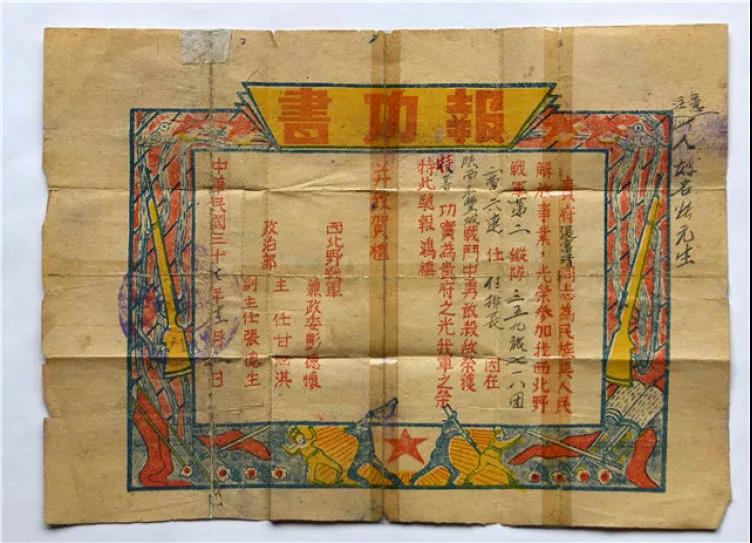 報功書
貴府張富清同志為民族與人民
解放事業,光榮參加我西北野
戰軍第二縱隊三五九旅七一八團
六連 仕 任排長 因在
陝西永豐城戰鬥中勇敢殺敵榮獲
特等 功實為貴府之光我軍之榮
特此馳報鴻禧
并致賀禧
西北野戰軍
兼政委彭德懷
政治部
主任甘泗淇
副主任張德生
中華民國三十七年十二月日